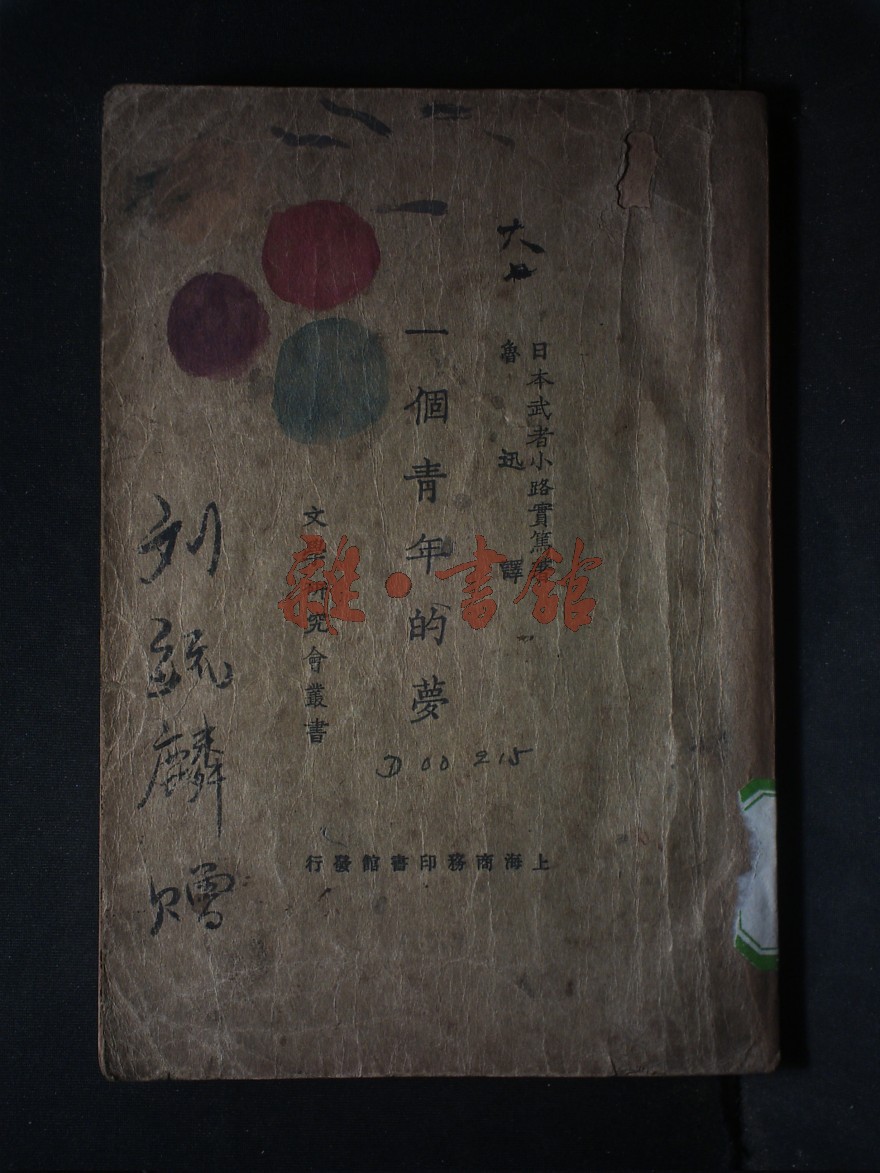 日本武者小路實篤
魯迅譯
一個青年的夢
文學研究會叢書
D 00 215
上海商務印書館發行
麟贈
雜·書館